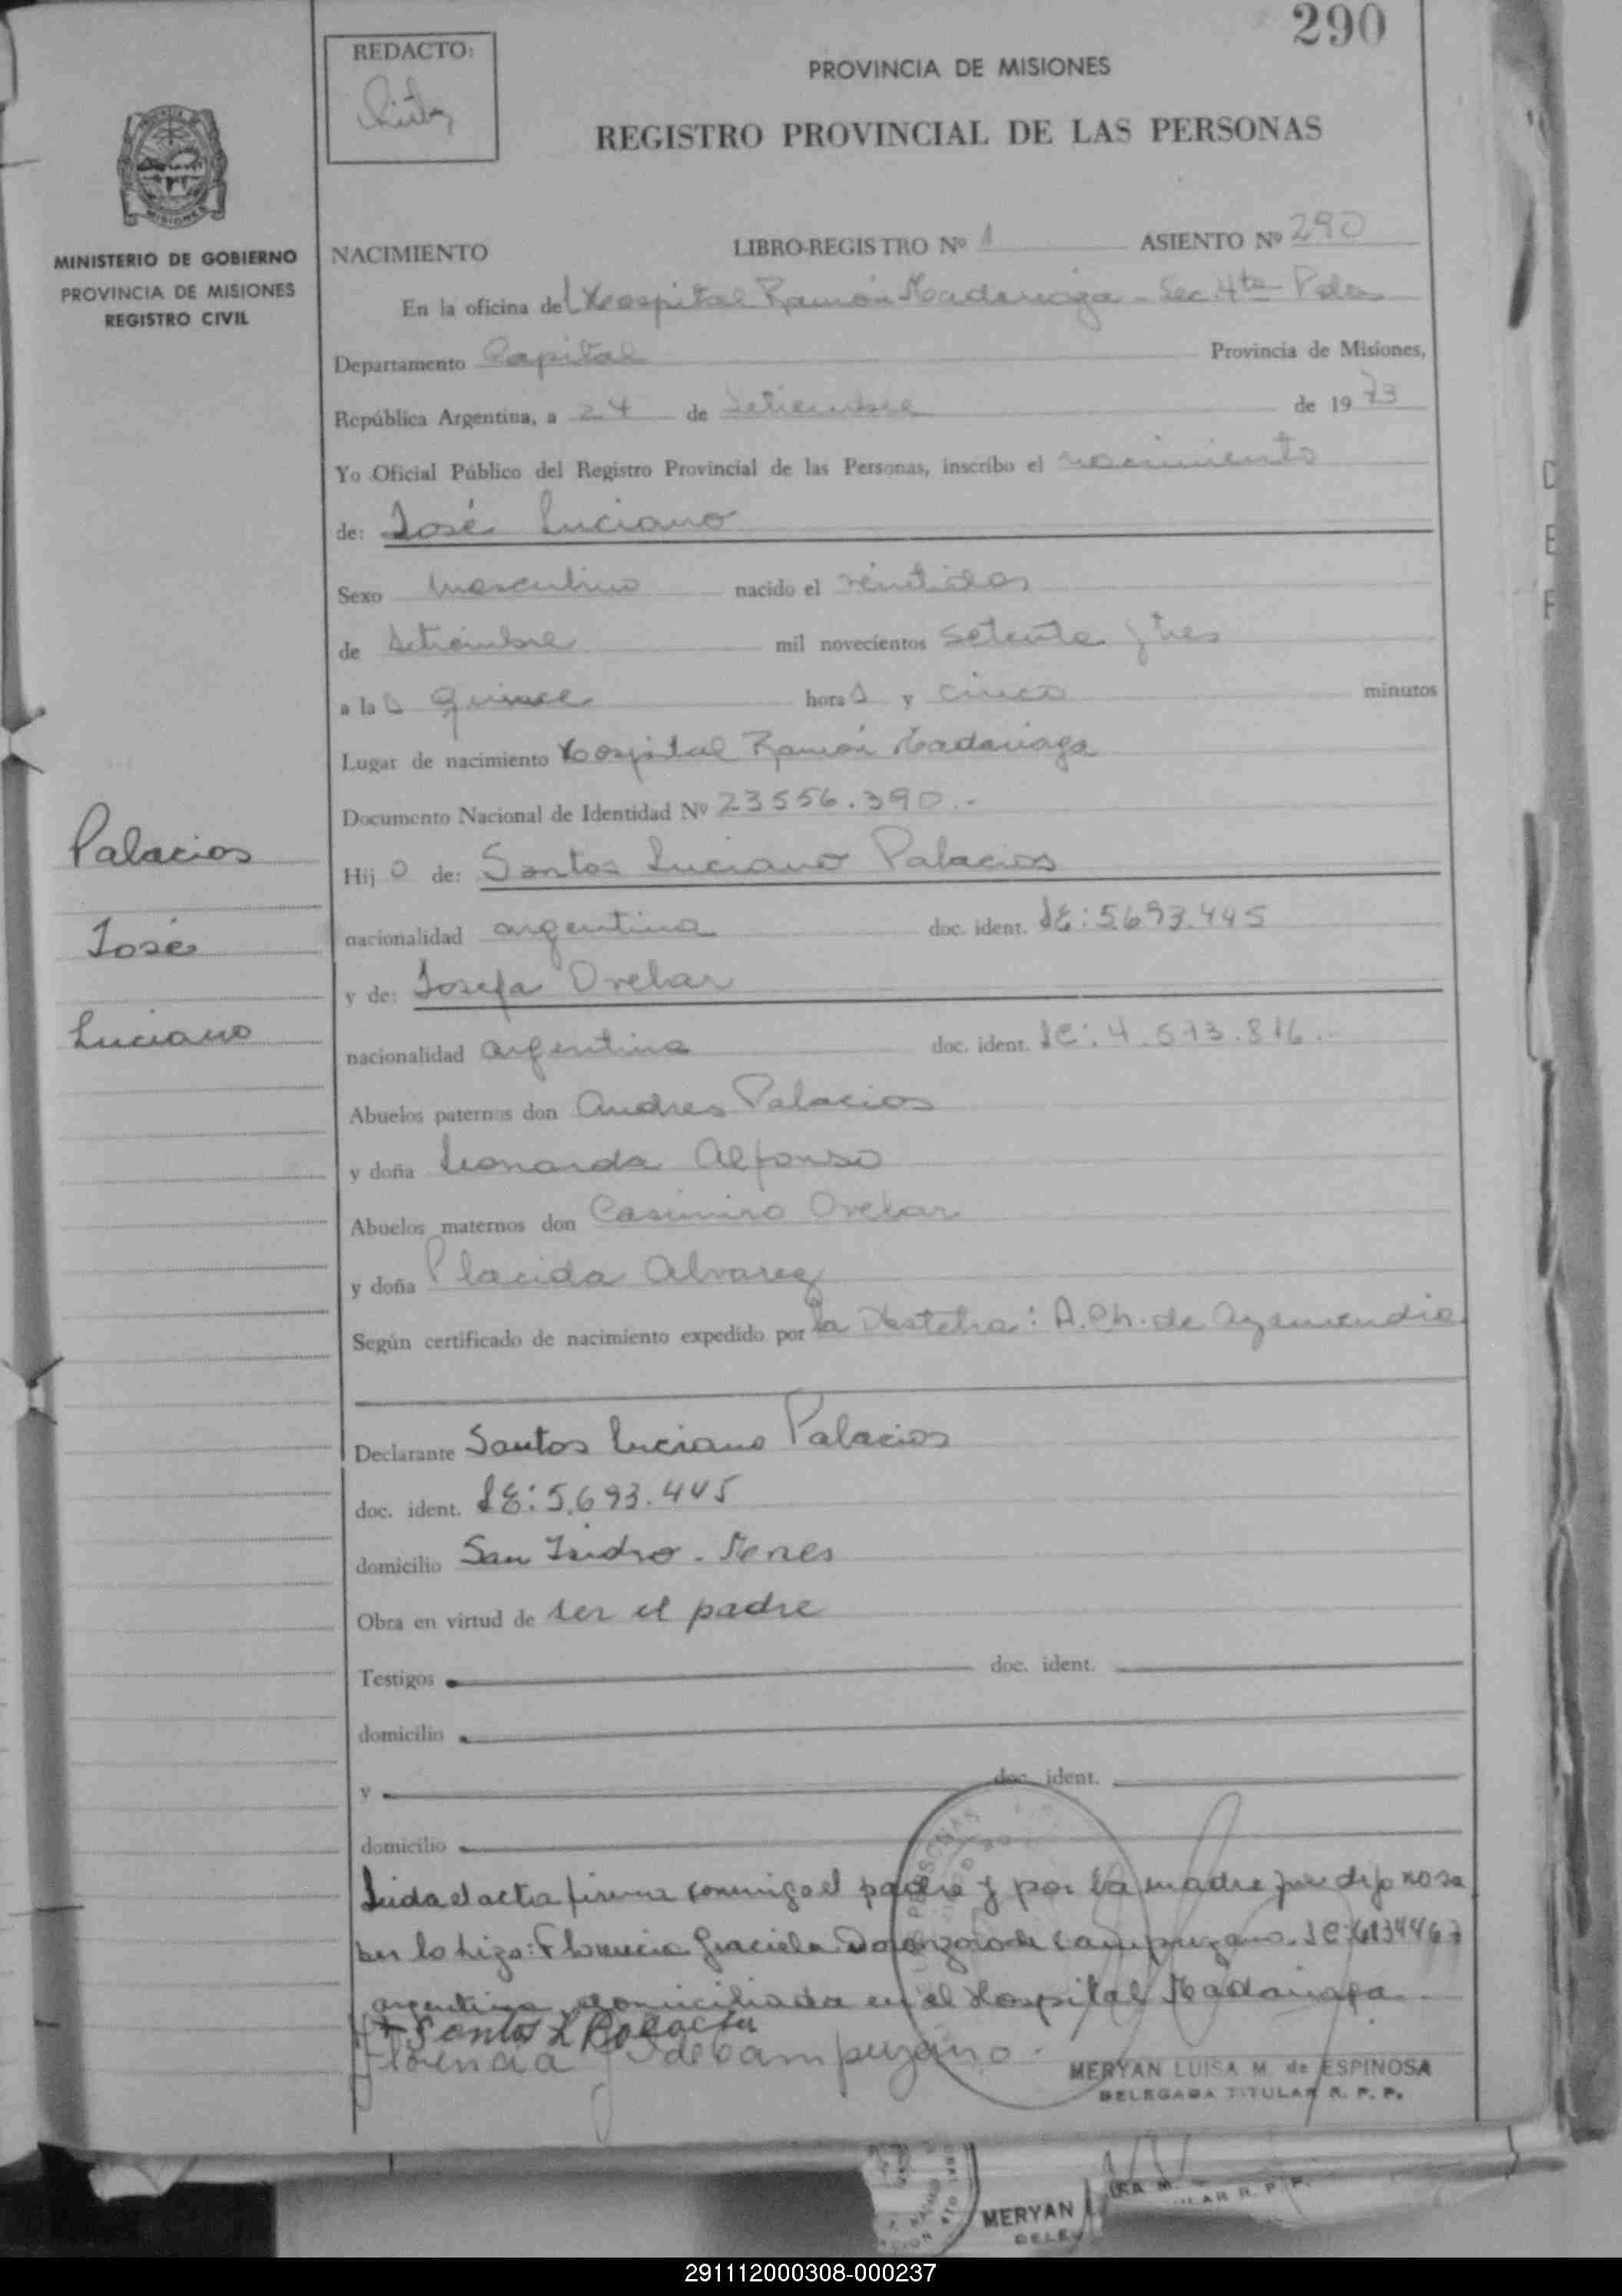 290
REDACTO:
PROVINCIA DE MISIONES
REGISTRO PROVINCIAL DE LAS PERSONAS
MISIONES
MINISTERIO DE GOBIERNO
PROVINCIA DE MISIONES
REGISTRO CIVIL
NACIMIENTO LIBRO-REGISTRO Nº 1 ASIENTO Nº 290
En la oficina del Hospital Ramón Madariaga - Sec. 4ta Pdas
Departamento Capital Provincia de Misiones,
República Argentina, a 24 de Setiembre de 1973
Yo Oficial Público del Registro Provincial de las Personas, inscribo el nacimiento
de: José Luciano
Sexo masculino nacido el veintidos
de Setiembre mil novecientos setenta y tres
a la s quince hora s y cinco minutos
Lugar de nacimiento Hospital Ramón Madariaga
Documento Nacional de Identidad Nº 23556.390.-
Palacios
Hij o de: Santos Luciano Palacios
José
nacionalidad argentina doc. ident. LE: 5.693.445
y de: Josefa Ovelar
Luciano
nacionalidad argentina doc. ident. LC: 4.573.816.-
Abuelos paternos don Andres Palacios
y doña Leonarda Alfonso
Abuelos maternos don Casimiro Ovelar
y doña Placida Alvarez
Según certificado de nacimiento expedido por la Obstetra: A. Ch. de
Declarante Santos Luciano Palacios
doc. ident. LE: 5.693.445
domicilio San Isidro - Mnes
Obra en virtud de ser el padre
Testigos doc. ident.
domicilio
y doc. ident.
domicilio
Leida el acta firma conmigo el padre y por la madre que dijo no sa
ber lo hizo: Florencia Graciela de Campuzano. LC 6134467
argentina domiciliada en el Hospital Madariaga
Santos L Palacios
Florencia G de Campuzano
MERYAN LUISA M. de ESPINOSA
DELEGADA TITULAR R. P. P.
MERYAN
DELE
291112000308-000237